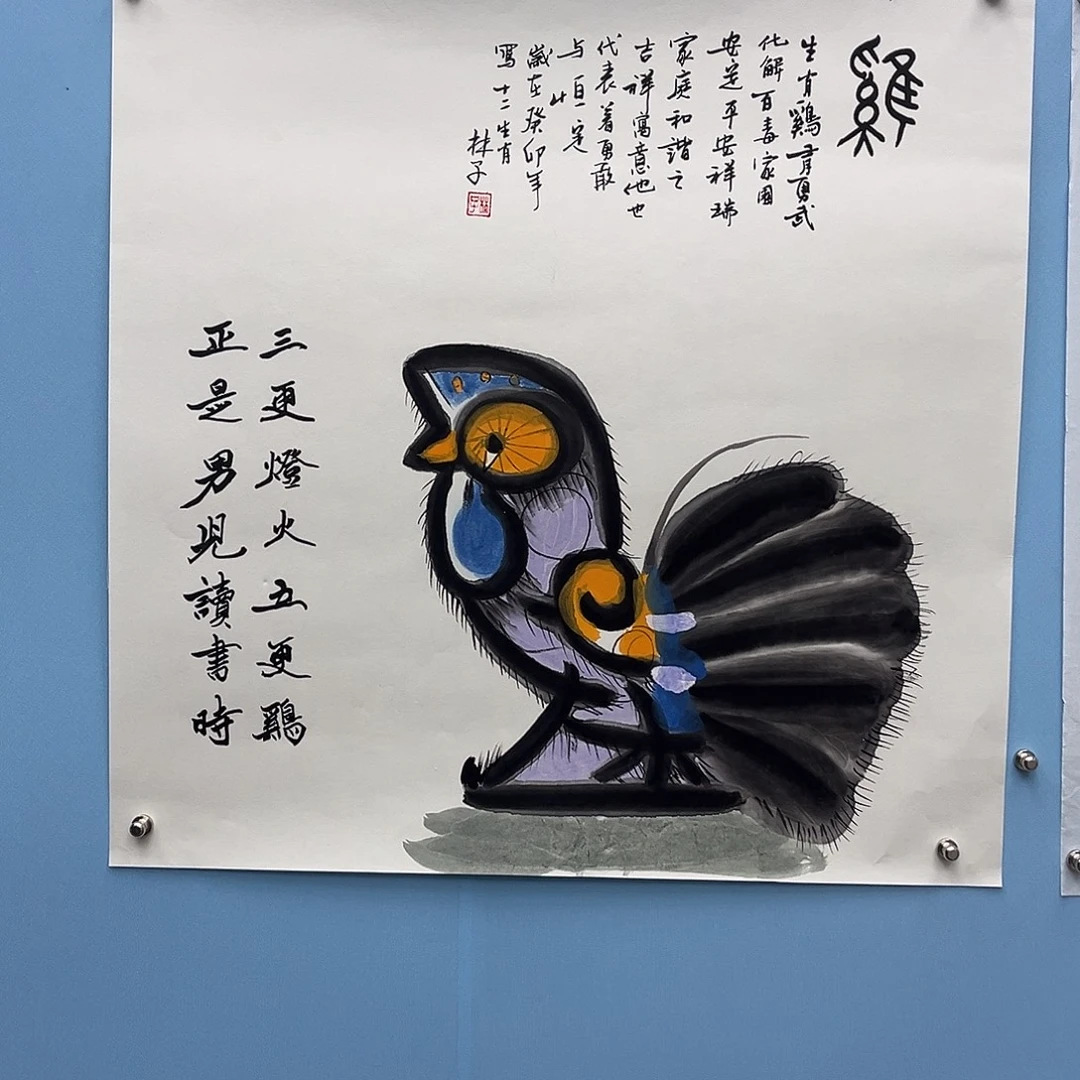 雞
生肖鷄有勇武
化解百毒家園
安定平安祥瑞
家庭和諧之
吉祥寓意他也
代表着勇敢
与恒定
歲在癸卯年
寫十二生肖
林子
三更燈火五更鷄
正是男児讀書時